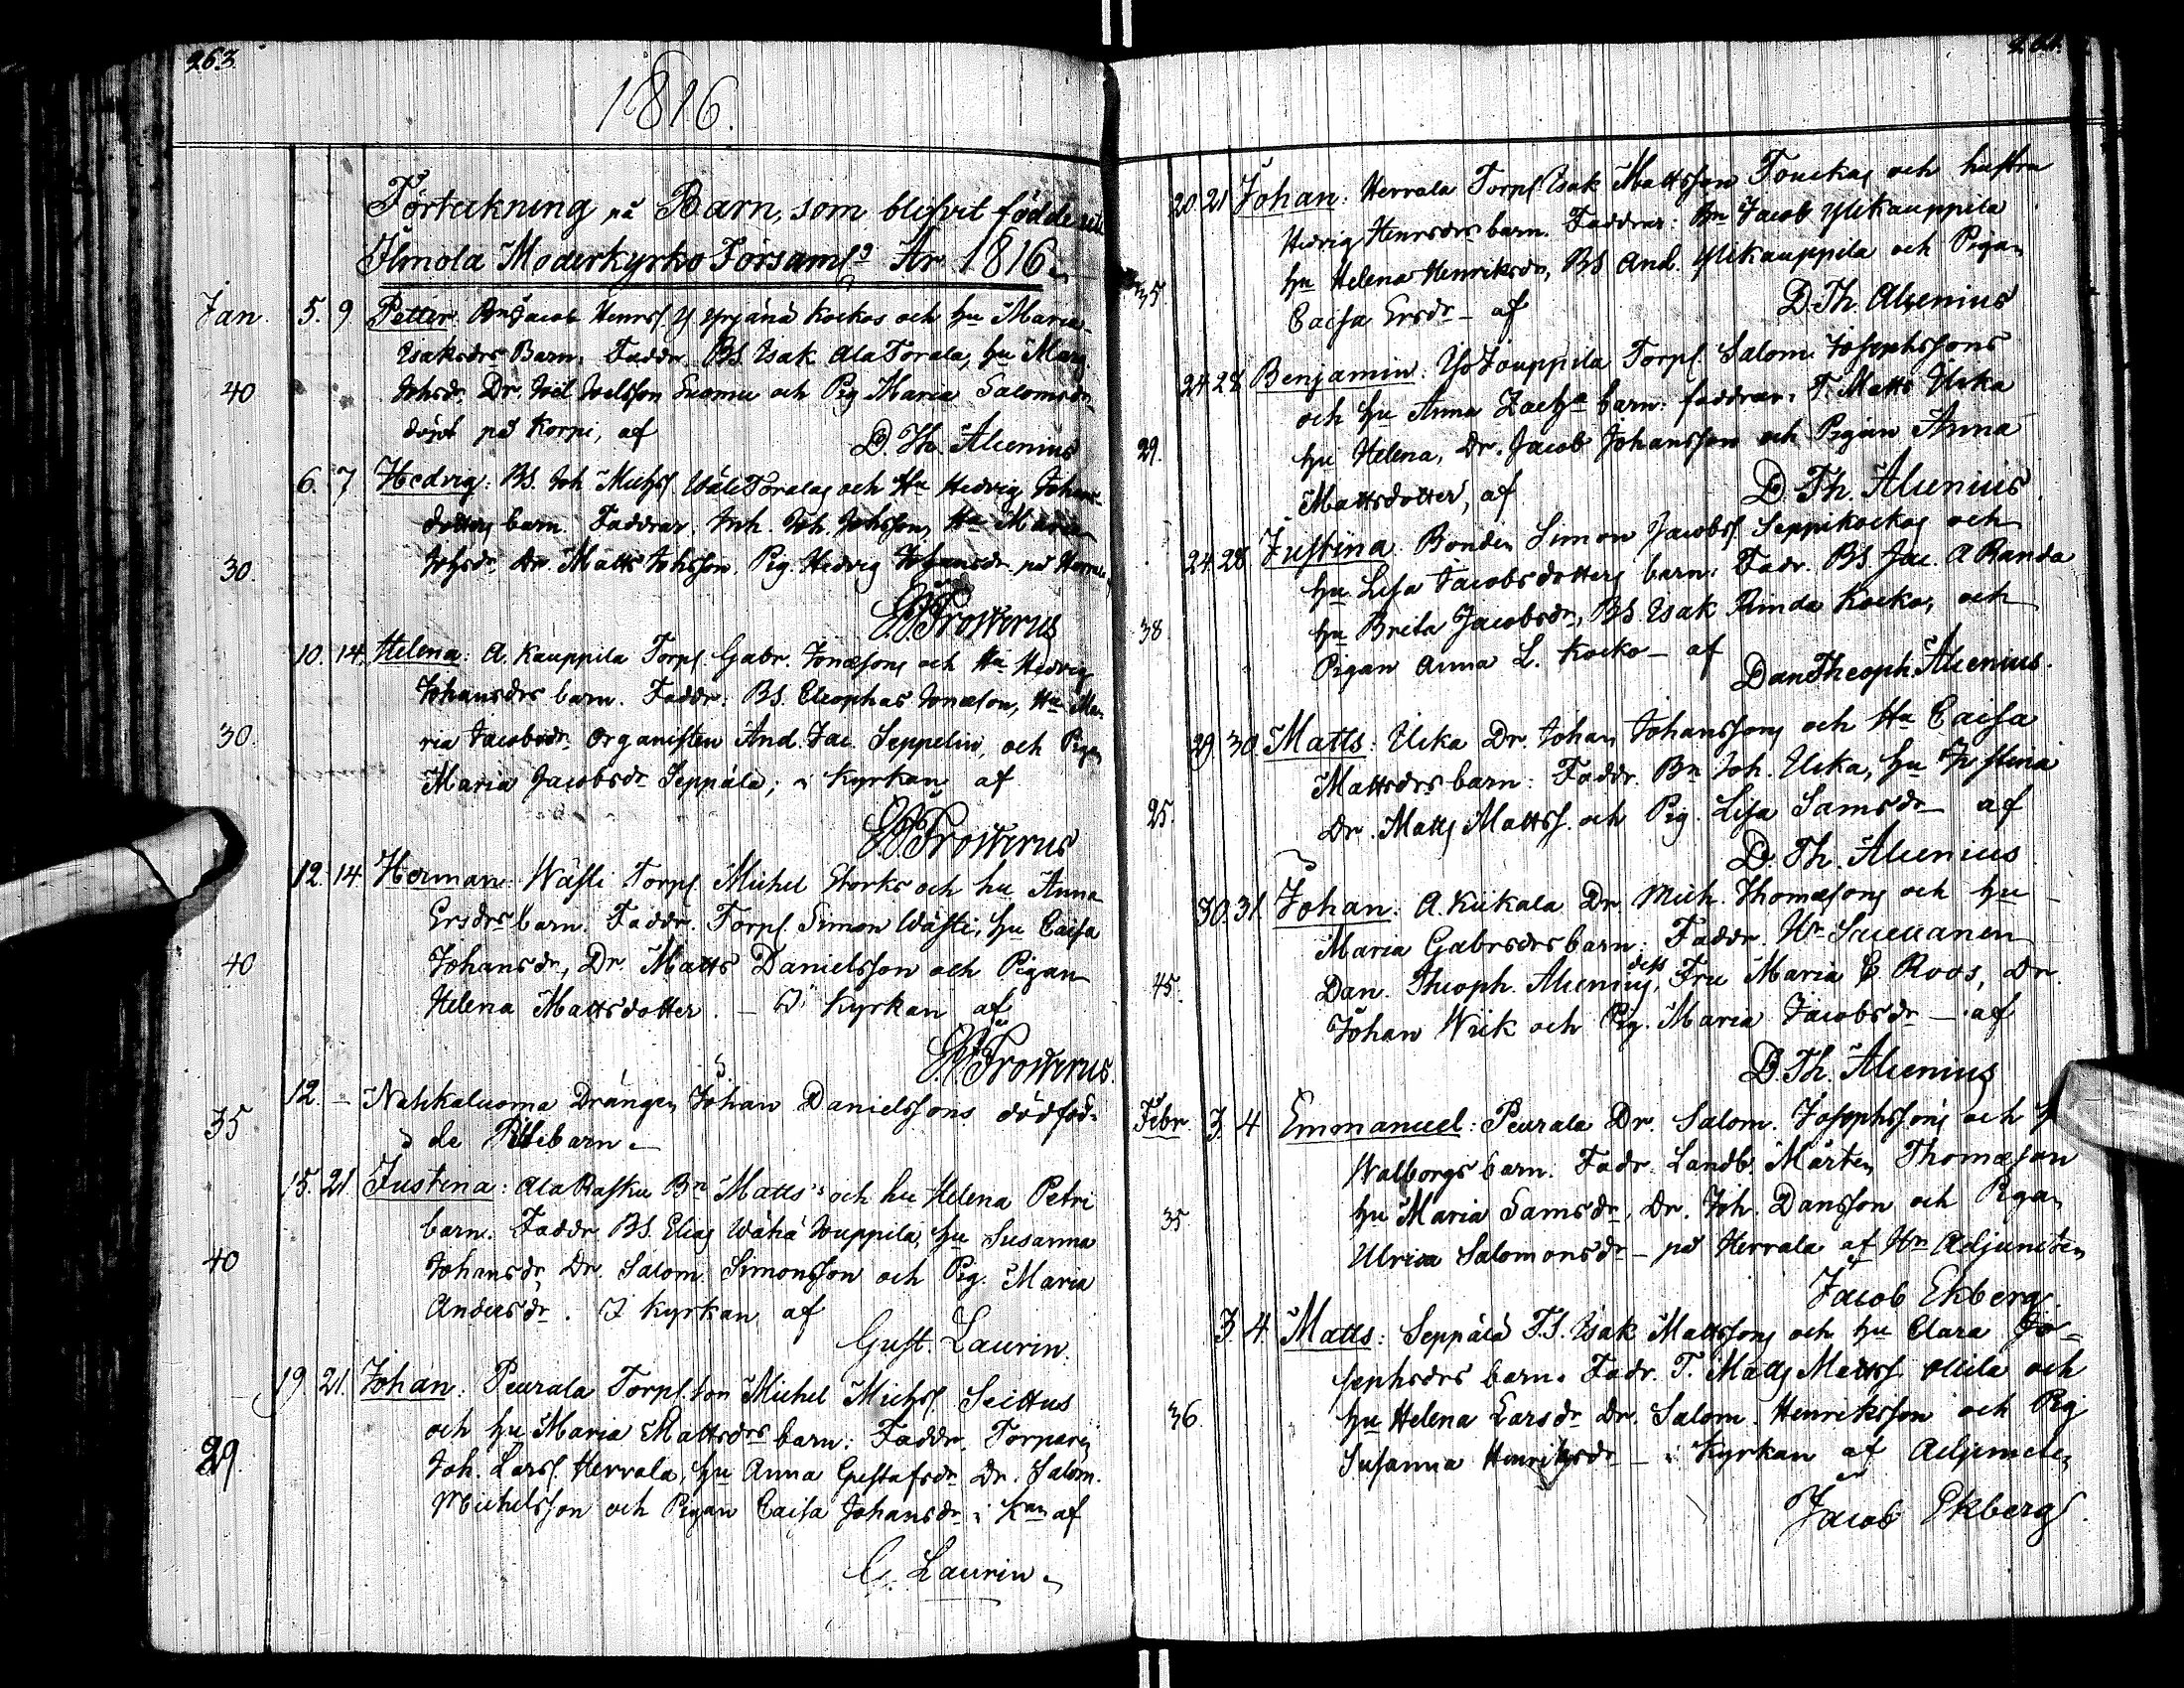 263.
1816.
Förtekning på Barn, som blifvit födde uti
Ilmola Moderkyrko Församlg År 1816.
Jan. 5. 9 Petter: Bn Jacob Henrs. Y Yrjänä Koskos och hu Maria
Isaksdrs Barn. Faddr. BS. Isak AlaTorala, hu Marg
40 Johsdr. Dr. Joel Joelsson Suomu och Pig Maria Salomsdr
döpt på Korpi, af
D. Th. Alcenius
6. 7 Hedvig: BS. Joh Michs. WäliToralas och Hu Hedvig Johans
dotters barn. Faddrar. Inh. Joh. Johsson, Hu Maria
30. Johsdr. Dr. Matts Johsson. Pig. Hedvig Johansdr. på Herrala
G. Proverus
10. 14. Helena: A. Kauppila Torps. Gabr. Jonæsons och Hu Hedvig
Johansdrs barn. Faddr: BS. Cleophas Jonæson, Hu Ma-
30. ria Jacobsdr. Organisten And. Jac. Seppelin, och Pigan
Maria Jacobsdr Seppälä; i Kyrkan af
G. Proverus
12. 14 Herman: Wästi Torps. Michel Storks och hu Anna
Ersdrs barn. Faddr. Torps. Simon Wästi, hu Caisa
40 Johansdr, Dr. Matts Danielsson och Pigan
Helena Mattsdotter. – I Kyrkan af
G. Proverus.
12. – Nahkaluoma Drängen Johan Danielssons dödföd-
35 de barn.
15. 21 Justina: AlaRasku Bn Matts's och hu Helena Petri
barn. Faddr BS. Elias Wähä Jouppila, hu Susanna
40 Johansdr, Dr. Salom. Simonsson och Pig. Maria
Andersdr. I Kyrkan af
Gust. Laurin.
19. 21. Johan: Peurala Torps. son Michel Michs.
och hu Maria Mattsdrs barn: Faddr. Torparen
29. Joh. Lars. Herrala, hu Anna Gustafsdr. Dr. Salom.
Michelsson och Pigan Caisa Johansdr i Kan af
G. Laurin.
20. 21 Johan: Herrala Torps. Isak Mattsson och hustru
Hedvig Henrsdrs barn. Faddrar: Bn Jacob Ylikauppila
35. hu Helena Henriksdr, BS And. Ylikauppila och Pigan
Caisa Ersdr – af
D. Th. Alcenius
24. 28 Benjamin: Jouppila Torps. Salom. Josephssons
och hu Anna barn: faddrar. T. Matts Uska
29. hu Helena, Dr. Jacob Johansson och Pigan Anna
Mattsdotter, af
D. Th. Alcenius.
24. 28 Justina: Bonden Simon Jacobs. Seppikoskos och
hu Lisa Jacobsdotters barn: Fadr. BS Jac. A Randa
38. hu Brita Jacobsdr, BS. Isak Rinda Kosko, och
Pigan Anna L. Kosko – af
Dan Theoph. Alcenius.
29. 30. Matts: Uska Dr. Johan Johanssons och Hu Caisa
Mattsdrs barn: Faddr. Bn Joh. Uska, hu Justina
25. Dr. Matts Matts. och Pig. Lisa Samsdr – af
D. Th. Alcenius
30. 31. Johan: A. Kiikala Dr. Mich. Thomæsons och hu
Maria Gabrsdrs barn: Faddr. Hr
45. Dan. Theoph. Alcenius, dess Fru Maria C. Roos, Dr.
Johan Wiik och Pig. Maria Jacobsdr – af
D. Th. Alcenius
Febr. 3. 4 Emmanuel: Peurala Dr. Salom. Josephssons och
Walborgs barn. Fadr. Landb. Mårten Thomæson
35. hu Maria Samsdr, Dr. Joh. Dansson och Pigan
Ulrica Salomonsdr – på Herrala af Hr Adjuncten
Jacob Ekberg
3. 4. Matts: Seppälä T.S. Isak Mattssons och hu Clara Jo-
sephsdrs barn. Fadr. T. Matts Matts. Ollila och
36. hu Helena Larsdr Dr. Salom. Henriksson och Pig
Susanna Henriksdr – i Kyrkan af Adjuncten
Jacob Ekberg.